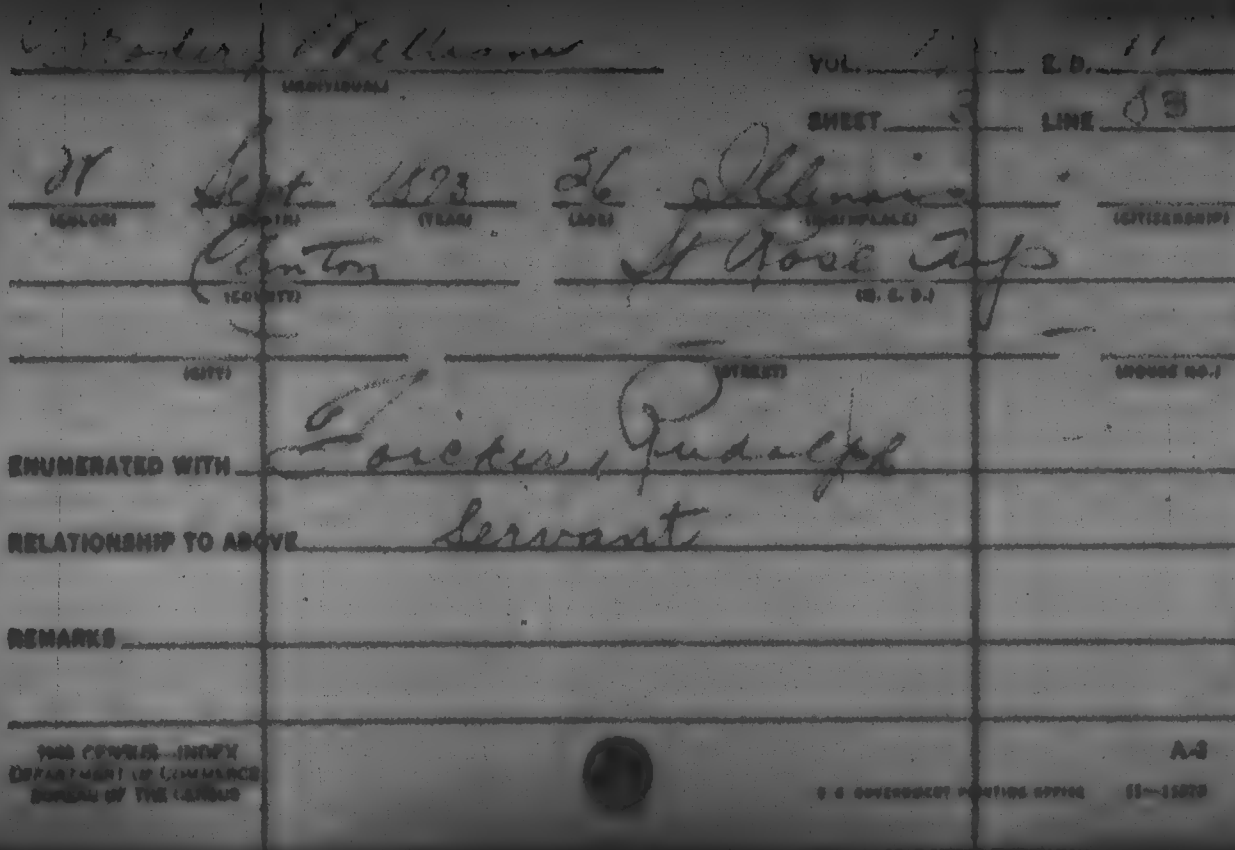 William
(INDIVIDUAL)
VOL. 1 E. D. 11
SHEET 3 LINE 83
W Sept 1873 26 Illinois
(COLOR) (MONTH) (YEAR) (AGE) (BIRTHPLACE) (CITIZENSHIP)
Clinton St Rose Twp
(COUNTY) (M. C. D.)
(CITY) (STREET) (HOUSE NO.)
ENUMERATED WITH Rudolph
RELATIONSHIP TO ABOVE Servant
REMARKS
1900 CENSUS—INDEX A-3
DEPARTMENT OF COMMERCE
BUREAU OF THE CENSUS U. S. GOVERNMENT PRINTING OFFICE